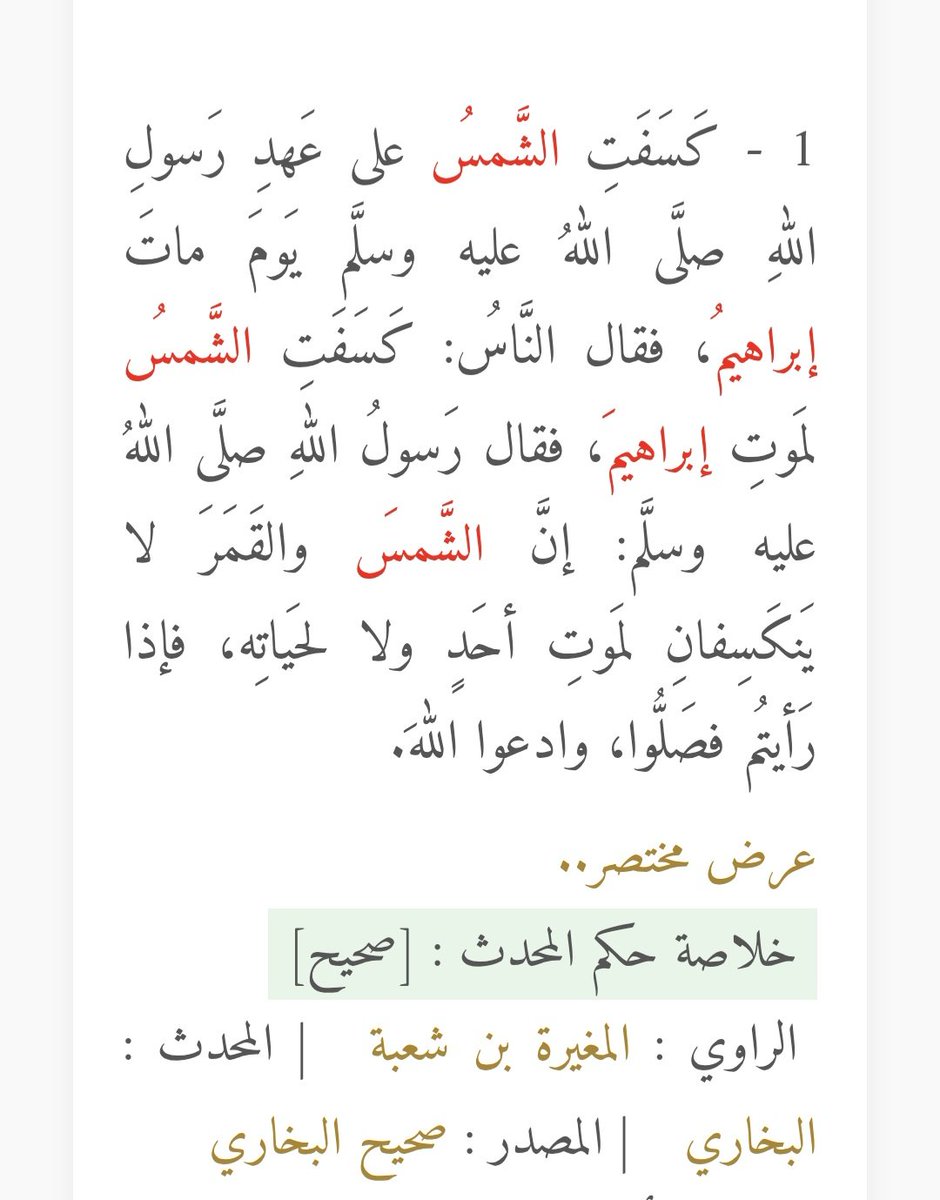 1 - كَسَفَتِ الشَّمسُ على عَهدِ رَسولِ
اللهِ صلَّى اللهُ عليه وسلَّم يَومَ ماتَ
إبراهيمُ، فقال النَّاسُ: كَسَفَتِ الشَّمسُ
لمَوتِ إبراهيمَ، فقال رَسولُ اللهِ صلَّى اللهُ
عليه وسلَّم: إنَّ الشَّمسَ والقَمَرَ لا
يَنكَسِفانِ لمَوتِ أحَدٍ ولا لحَياتِه، فإذا
رَأيتُم فصَلُّوا، وادعوا اللهَ.
عرض مختصر..
خلاصة حكم المحدث : [صحيح]
الراوي : المغيرة بن شعبة | المحدث :
البخاري | المصدر : صحيح البخاري